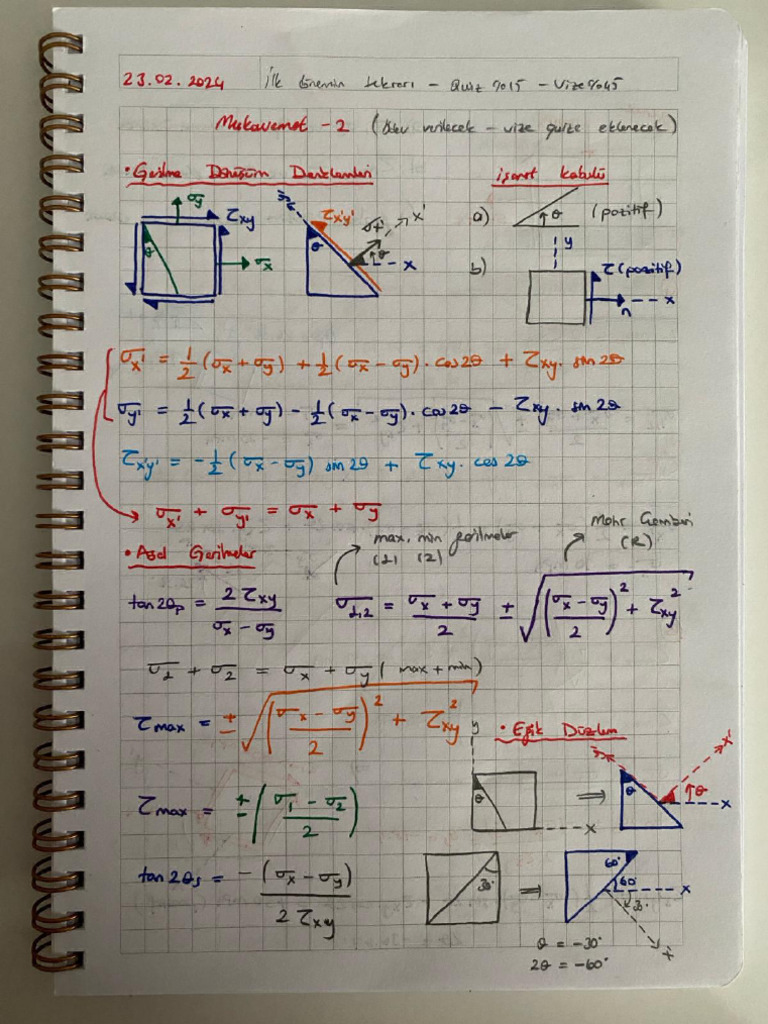 23.02.2024 İlk dönemin tekrarı - Quiz %15 - Vize %45
Mukavemet - 2 (Ödev verilecek - vize quize eklenecek)
• Gerilme Dönüşüm Denklemleri
işaret kabulü
σy τxy θ σx
y' τx'y' σx' x' θ θ x
a) θ (pozitif)
b) y τ (pozitif) n x
σx' = 1/2 (σx + σy) + 1/2 (σx - σy) . cos2θ + τxy . sin2θ
σy' = 1/2 (σx + σy) - 1/2 (σx - σy) . cos2θ - τxy . sin2θ
τx'y' = -1/2 (σx - σy) sin2θ + τxy . cos2θ
σx' + σy' = σx + σy
• Asal Gerilmeler
max, min gerilmeler
(1) (2)
Mohr Çemberi
(R)
tan2θp = 2τxy / (σx - σy)
σ1,2 = (σx + σy)/2 ± √(((σx - σy)/2)² + τxy²)
σ1 + σ2 = σx + σy (max + min)
τmax = ± √(((σx - σy)/2)² + τxy²)
• Eğik Düzlem
y θ x ⇒ y' θ x' θ x
τmax = ± ((σ1 - σ2)/2)
tan2θs = -(σx - σy) / 2τxy
30° ⇒ 60° 60° 30° x x'
θ = -30°
2θ = -60°